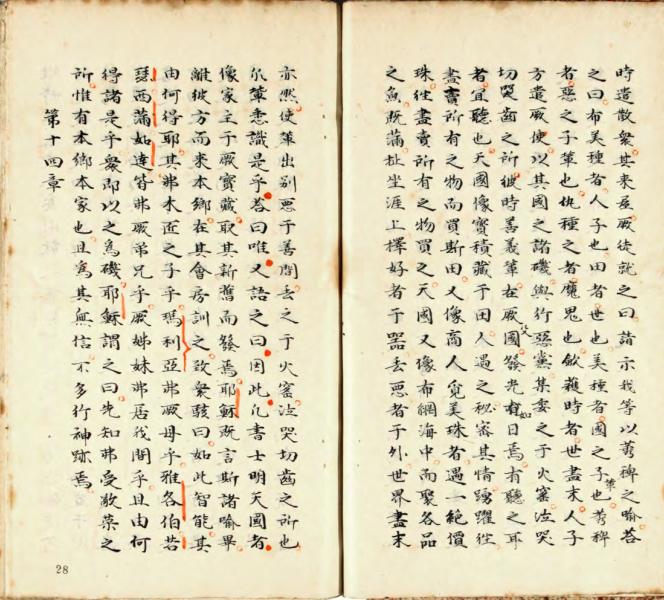 時遣散衆其来屋厥徒就之曰請示我等以莠稗之喻荅
之曰布美種者人子也田者世也美種者國之子輩也莠稗
者惡之子輩也仇種之者魔鬼也斂穫時者世盡末人子
方遣厥使以其國之諸礙與行惡黨其委之于火窰泣哭
切齒之所彼時善義輩在厥父國發光如日焉有聽之耳
者宜聽也天國像寳積藏于田人遇之秘審其情踴躍徃
盡賣所有之物而買斯田又像啇人覓美珠者遇一絶價
珠徃盡賣所有之物買之天國又像布網海中而聚各品
之魚既滿扯坐涯上擇好者于器丢悪者于外世界盡末
亦然使輩出别惡于善間丢之于火窰泣哭切齒之所也
尓輩悉識是乎荅曰唯又語之曰因此凢書士明天國者
像家主于厥寳藏取其新舊而發焉耶穌既言斯諸喻畢
離彼方而来本鄉在其會房訓之致衆駭曰如此智能其
由何得耶其弗木匠之子乎瑪利亞弗厥母乎雅各伯若
瑟西滿如達皆弗厥弟兄乎厥姊妹弗居我間乎且由何
得諸是乎衆即以之為礙耶穌謂之曰先知弗受敝榮之
所惟有本鄉本家也且為其無信不多行神跡焉
第十四章
28